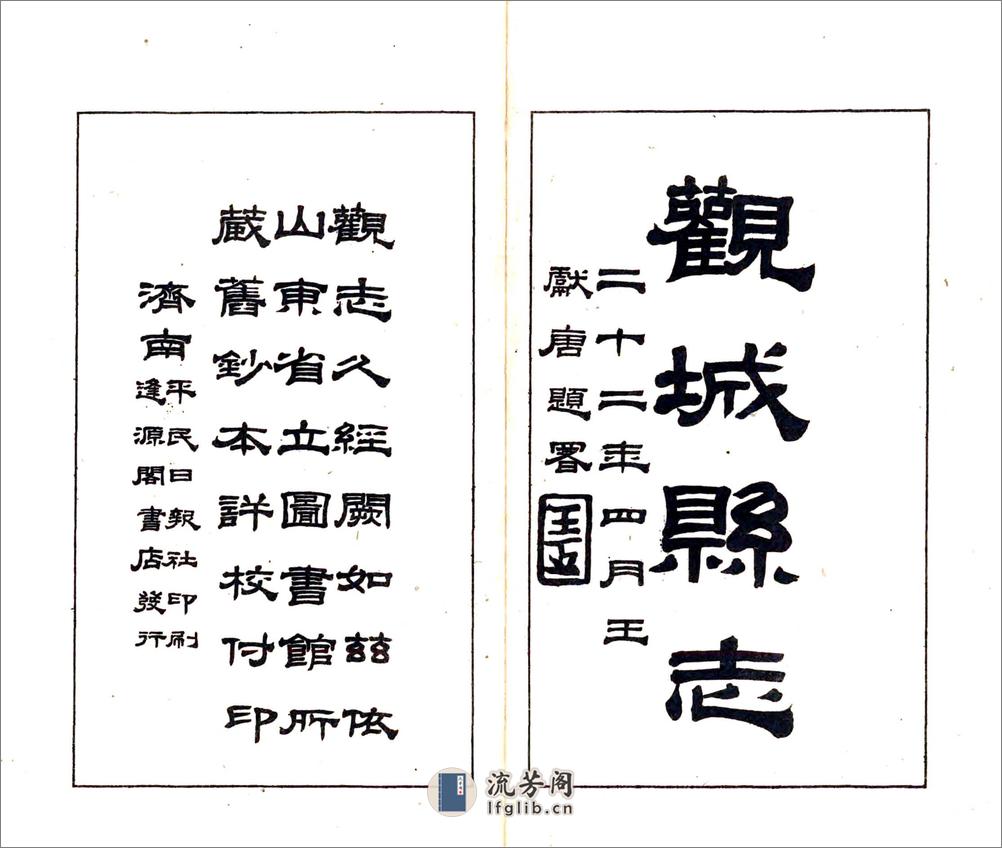 觀城縣志
二十二年四月王
獻唐題署
觀志久經闕如茲依
山東省立圖書館所
藏舊鈔本詳校付印
濟南平民日報社印刷
逢源閣書店發行
流芳阁
lfglib.cn